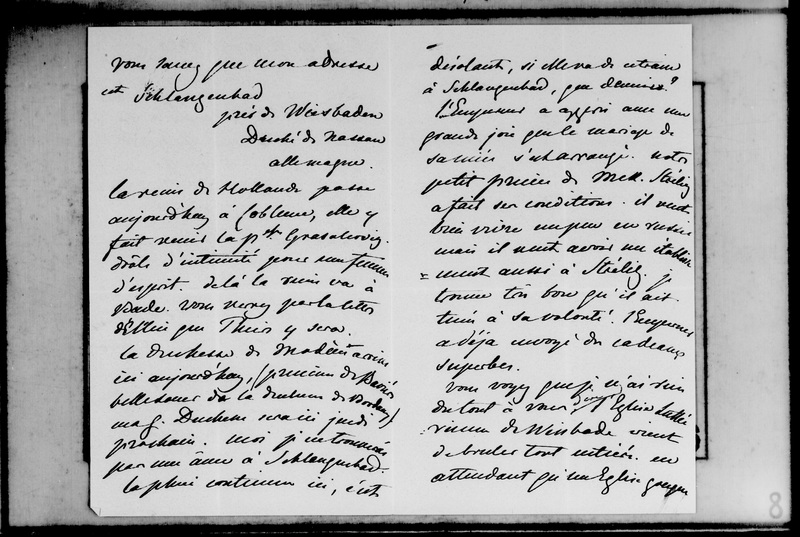 vous savez que mon adresse
est Schlangenbad
près de Wiesbaden
Duché de Nassau
allemagne.
la reine de Hollande passe
aujourd'huy à Coblence, elle y
fait venir la Psse Grasalcovig.
drôle d'intimité pour une femme
d'esprit. delà la reine va à
Bade. vous verrez par la lettre
d'Ellice que Thiers y sera.
la duchesse de Modène arrive
ici aujourd'huy, (princesse de Bavière
belle soeur de la duchesse de Bordeaux)
mad. Duchene sera ici jeudi
prochain. moi je ne trouverai
pas une âme à Schlangenbad.
la pluie continue ici, c'est
désolant, si elle va de même
à Schlangenbad, que devenir?
l'Empereur a appris avec une
grande joie que le mariage de
sa nièce s'est arrangé. notre
petit prince de Meck. Strélitz
a fait ses conditions. il veut
bien vivre un peu en russie
mais il veut avoir un établisse
= ment aussi à Strélitz. je
trouve très bon qu'il ait
tenu à sa volonté. l'Empereur
a déjà envoyé des cadeaux
superbes.
vous voyez que je n'ai rien
du tout à vous dire. l'Eglise luthé
rienne de Wiesbade vient
de bruler tout entière. en
attendant qu'une Eglise grecque
8